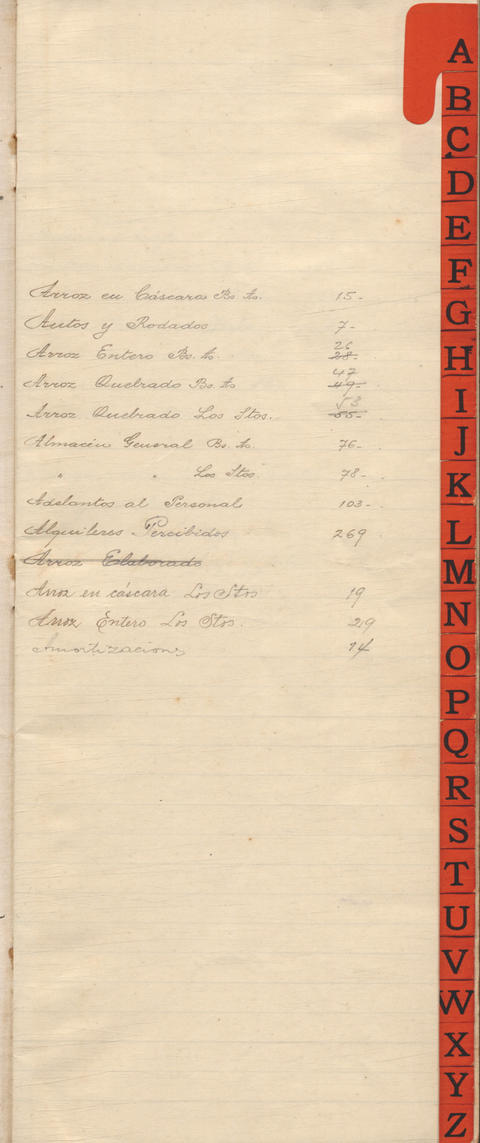 Arroz en Cáscara Bs. As. 15-
Autos y Rodados 7-
Arroz Entero Bs. As. 26 28-
Arroz Quebrado Bs. As 47 49-
Arroz Quebrado Los Stos. 53 55-
Almacén General Bs. As. 76-
" " Los Stos. 78-
Adelantos al Personal 103-
Alquileres Percibidos 269
Arroz Elaborado
Arroz en cáscara Los Stos 19
Arroz Entero Los Stos. 29
Amortizaciones 14
A
B
C
D
E
F
G
H
I
J
K
L
M
N
O
P
Q
R
S
T
U
V
W
X
Y
Z